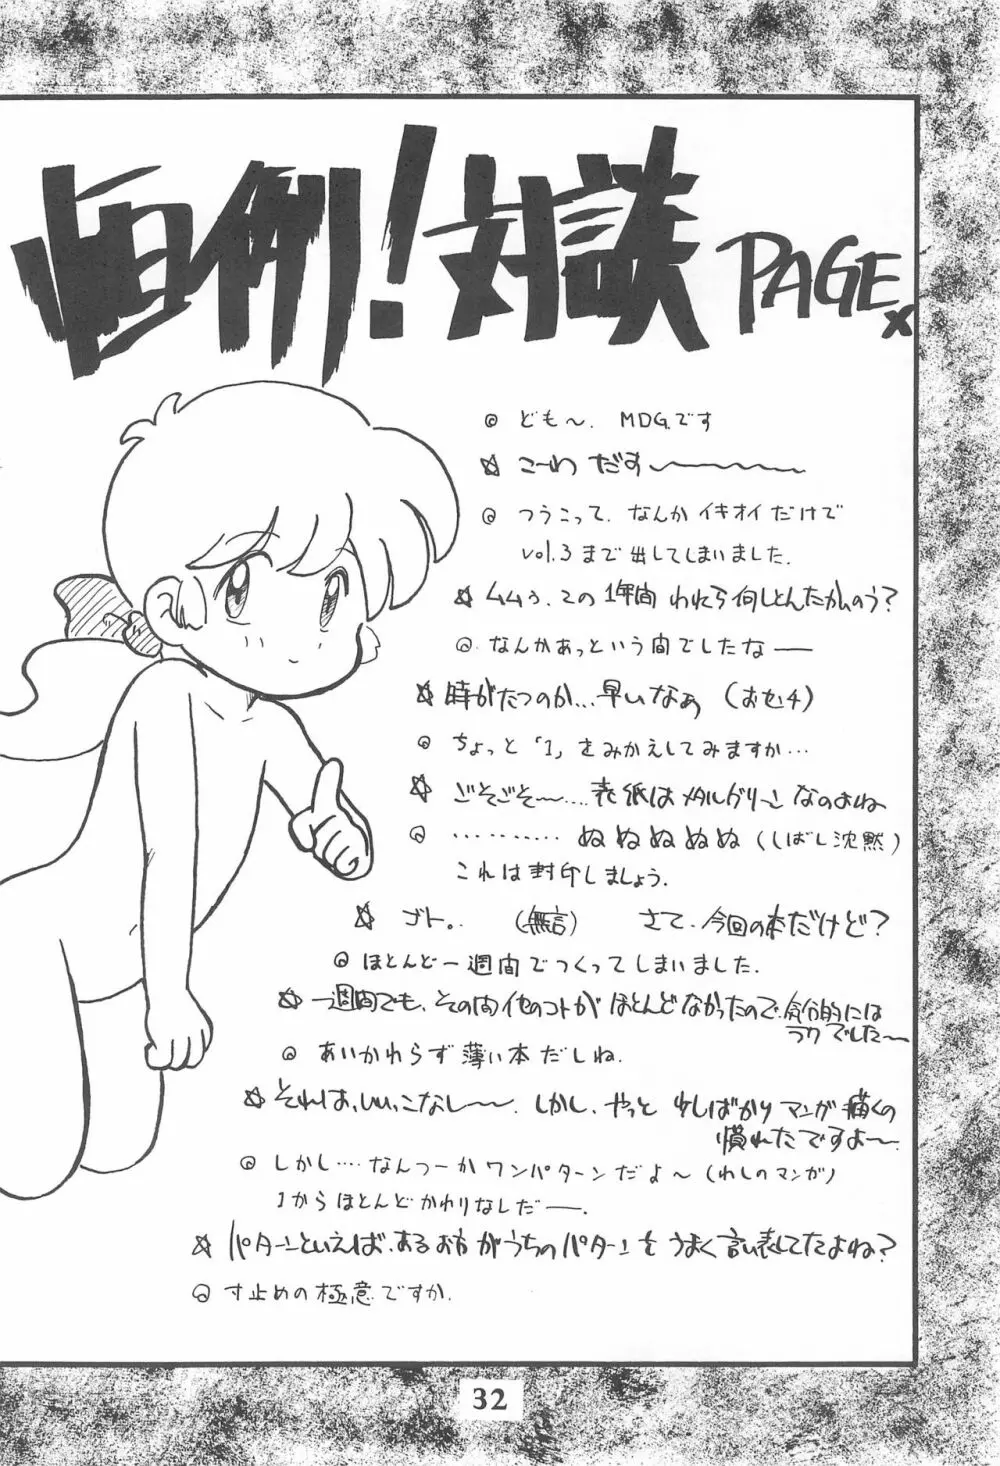 恒例!対談 PAGE x
◎ ども〜. MDG.です
☆ こーわ だす〜〜〜
◎ つうこって、なんかイキオイだけで
vol.3まで出してしまいました.
☆ ムムゥ、この1年間われら何しとんたかのう?
◎ なんかあっという間でしたなー
☆ 時がたつのか...早いなぁ (おセ4)
◎ ちょっと「1」をみかえしてみますか…
☆ ごそごそ〜....表紙はメタルグリーンなのよね
◎ ………… ぬぬぬぬぬ (しばし沈黙)
これは封印しましょう.
☆ ゴト。. (無言) さて、今回の本だけど?
◎ ほとんど一週間でつくってしまいました.
☆ 一週間でも、その間他のコトがほとんどなかったので、気分的には
ラクでした〜
◎ あいかわらず薄い本だしね.
☆ それは、いい、こなし〜. しかし、やっと少しばかりマンガ描くの
慣れたですよ〜
◎ しかし…. なんつーかワンパターンだよ〜 (わしのマンガ)
1からほとんどかわりなしだー.
☆ パターンといえば、あるお方がうちのパターンをうまく言い表してたよね?
◎ 寸止めの極意ですか.
32